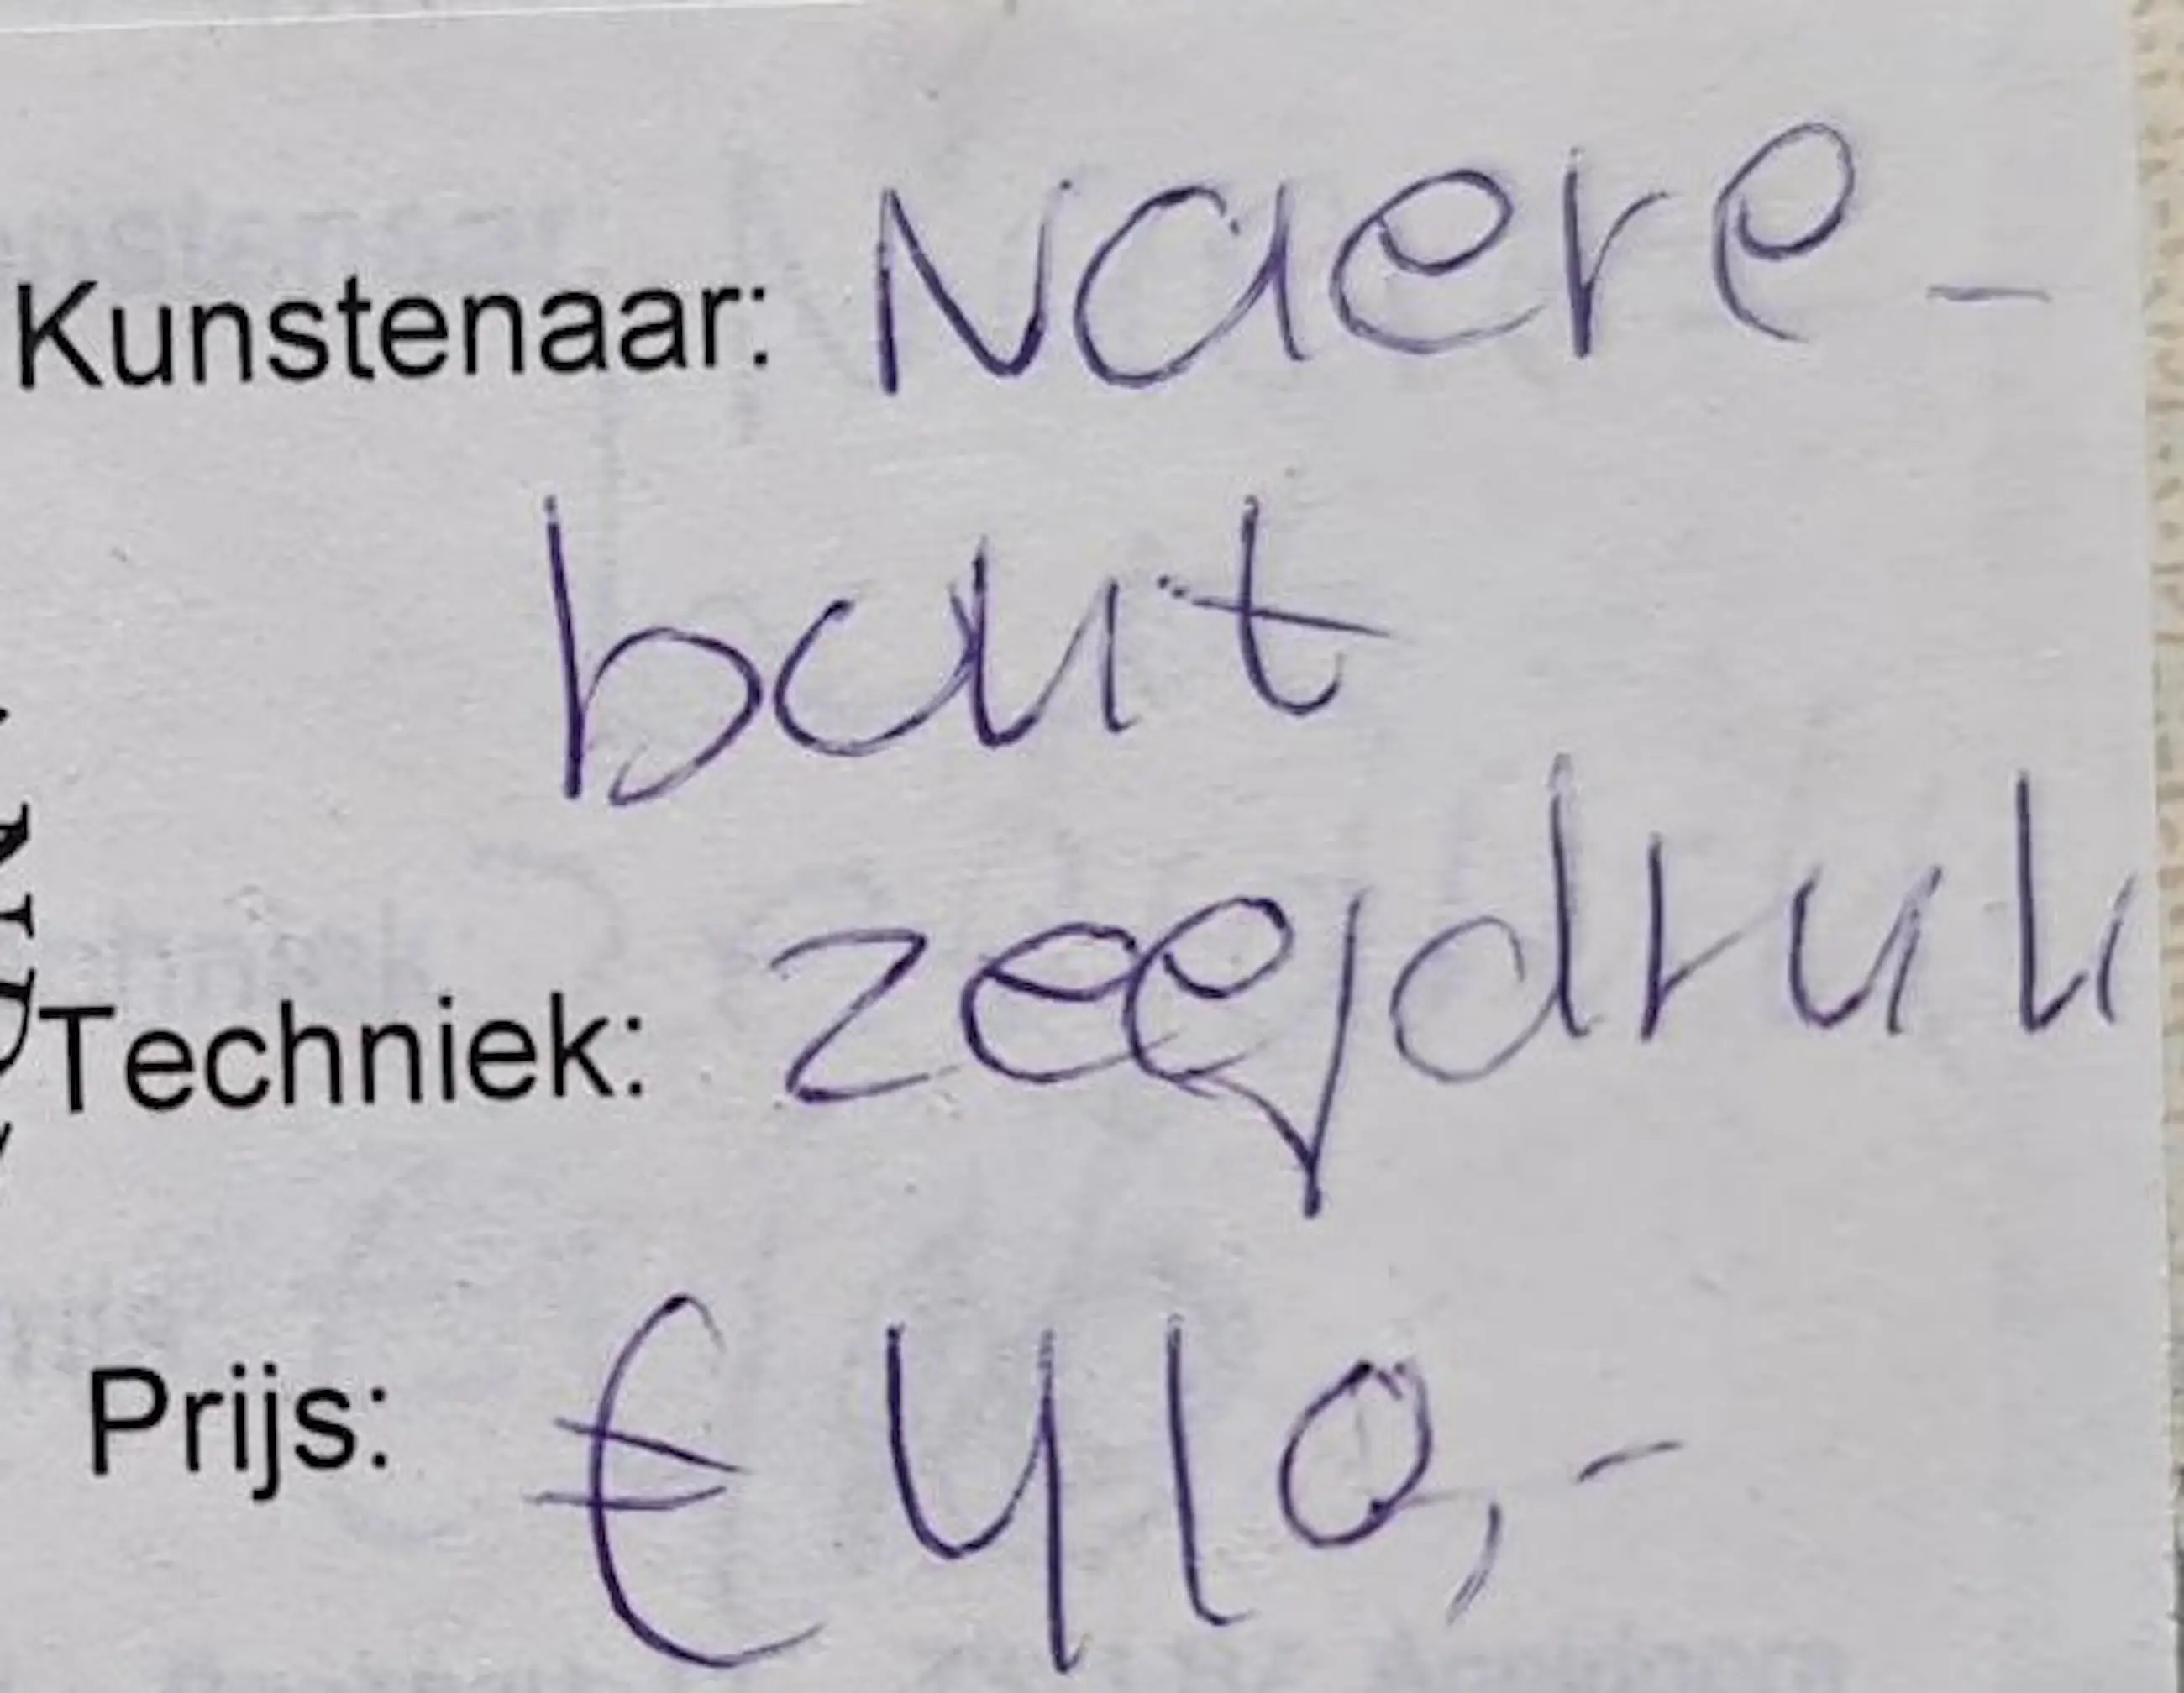 Kunstenaar: Naere-
baut
Techniek: zeefdruk
Prijs: € 410,-